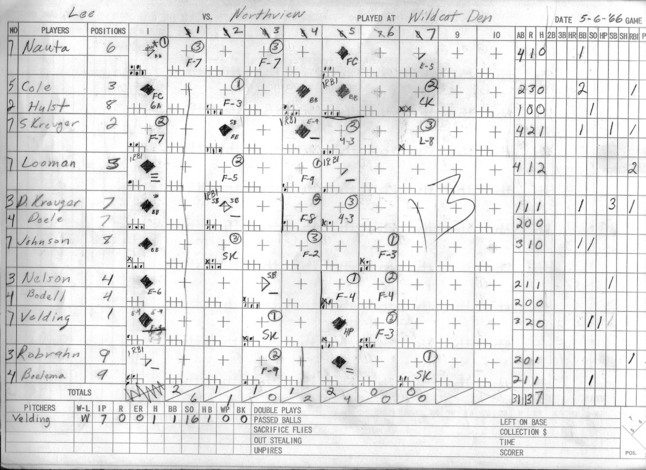 Lee VS. Northview PLAYED AT Wildcat Den DATE 5-6-'66 GAME
NO PLAYERS POSITIONS 1 1 2 3 4 5 6 7 9 10 AB R H 2B 3B HR BB SO HP SB SH RBI P
7 Nauta 6 F-7 F-7 FC E-5 4 1 0 1
5 Cole 3 FC 6A F-3 BB 1RBI BB CK 2 3 0 2 1
2 Hulst 8 1 0 0 1
7 S Kreuger 2 F-7 SB BB 1RBI E-9 4-3 L-8 4 2 1 1 1 1
7 Looman 3 1RBI F-5 F-9 1RBI 4 1 2 2
3 D. Kreuger 7 BB 1RBI SB F-8 4-3 1 1 1 1 3 1
4 Doele 7 2 0 0
7 Johnson 8 BB SK F-2 F-3 3 1 0 1 1
3 Nelson 4 E-6 SB F-4 F-4 2 1 1 1
4 Bodell 4 2 0 0
7 Velding 1 E-9 SK HP F-3 3 2 0 1 1
3 Robrahn 9 1RBI F-9 SK 2 0 1 1
4 Boelema 9 2 1 1 1
13
TOTALS 2 6 1 1 1 0 1 2 2 4 0 0 0 0 31 13 7
PITCHERS W-L IP R ER H BB SO HB WP BK DOUBLE PLAYS
Velding W 7 0 0 1 1 16 1 0 0 PASSED BALLS LEFT ON BASE
SACRIFICE FLIES COLLECTION $
OUT STEALING TIME
UMPIRES SCORER POS.